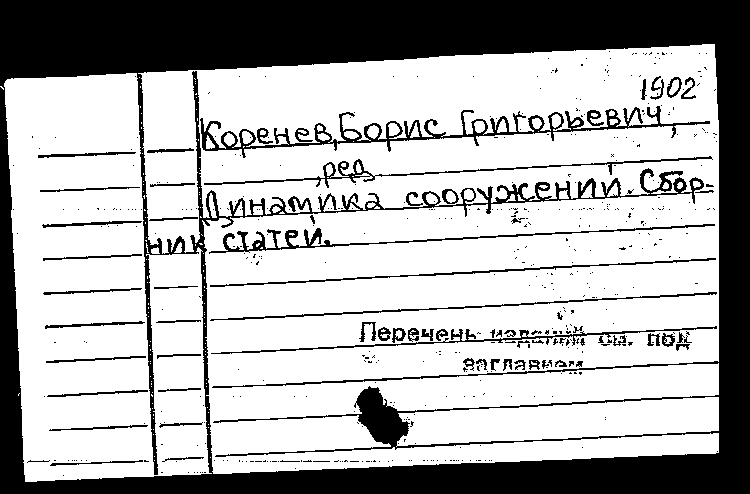 1902
Коренев, Борис Григорьевич,
, ред
Динамика сооружений. Сбор-
ник статей.
Перечень изданий см. под
заглавием